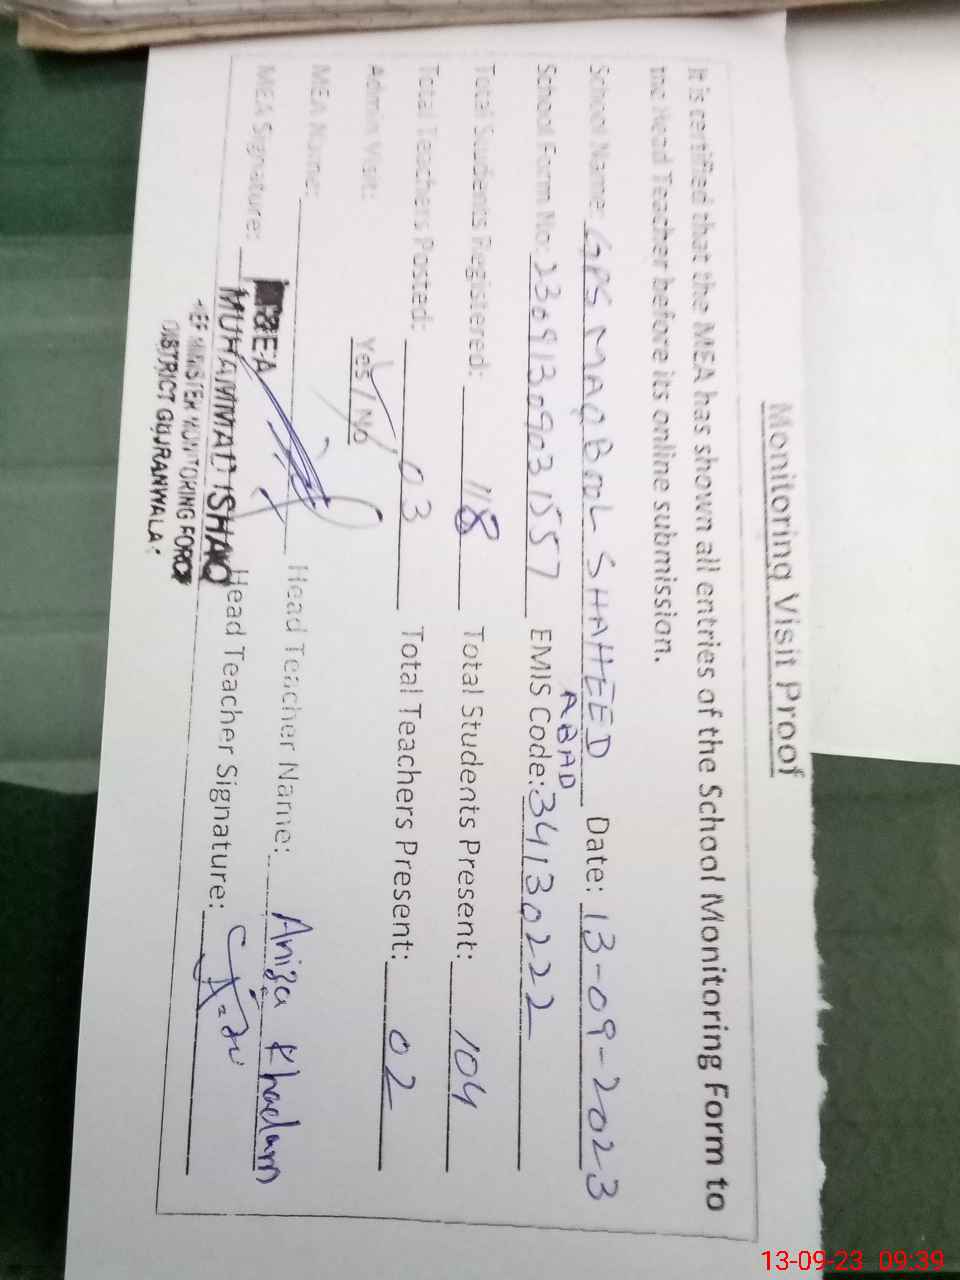 Monitoring Visit Proof
It is certified that the MEA has shown all entries of the School Monitoring Form to
the Head Teacher before its online submission.
School Name: GPS MAQBOOL SHAHEED ABAD Date: 13-09-2023
School Form No: 2309130903157 EMIS Code: 34130222
Total Students Registered: 118 Total Students Present: 104
Total Teachers Posted: 03 Total Teachers Present: 02
Admin Visit: Yes / No
MEA Name: Head Teacher Name: Aniqa Khadam
MEA Signature: Head Teacher Signature:
MEA
MUHAMMAD ISHAQ
CHIEF MINISTER MONITORING FORCE
DISTRICT GUJRANWALA
13-09-23 09:39